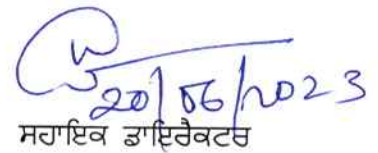 20/06/2023
ਸਹਾਇਕ ਡਾਇਰੈਕਟਰ